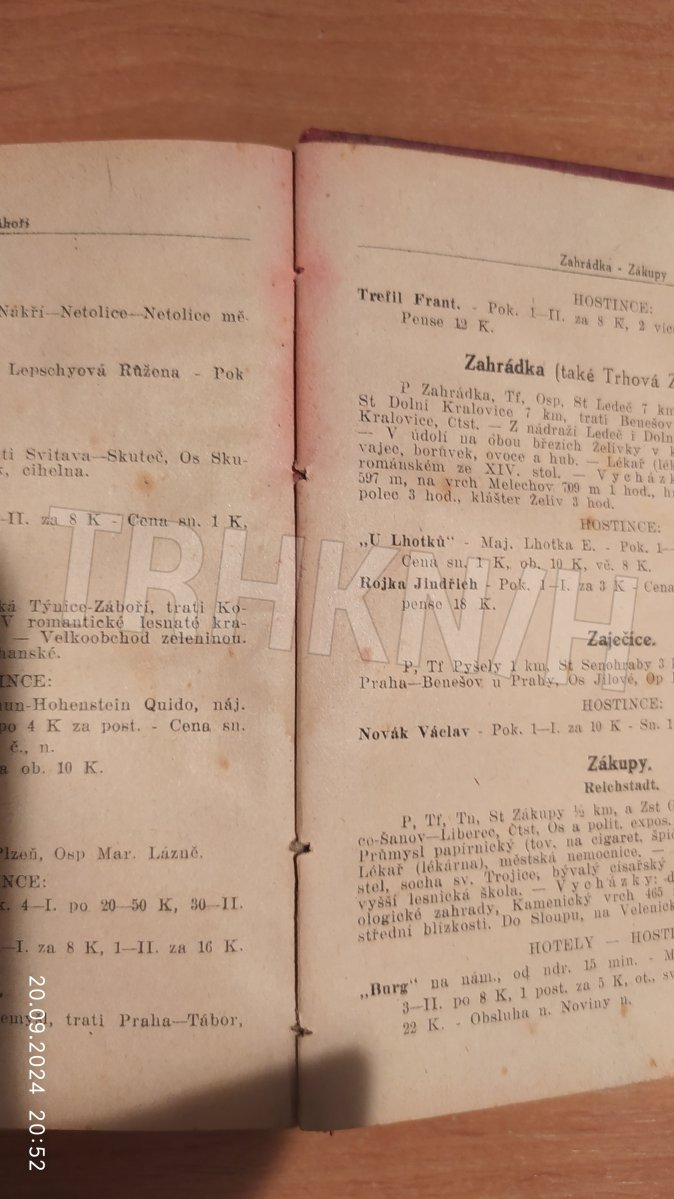 Nákří—Netolice—Netolice mě-
Lepschyová Růžena - Pok
ti Svitava—Skuteč, Os Sku-
cihelna.
-II. za 8 K - Cena sn. 1 K,
ká Týnice-Záboří, trati Ko-
V romantické lesnaté kra-
— Velkoobchod zeleninou.
hanské.
INCE:
un-Hohenstein Quido, náj.
po 4 K za post. - Cena sn.
č., n.
a ob. 10 K.
Plzeň, Osp Mar. Lázně.
NCE:
k. 4—I. po 20—50 K, 30—II.
—I. za 8 K, 1—II. za 16 K.
emyšl, trati Praha—Tábor,
Zahrádka - Zákupy
HOSTINCE:
Trefil Frant. - Pok. 1—II. za 8 K, 2 více
Pense 12 K.
Zahrádka (také Trhová Z
P Zahrádka, Tf, Osp, St Ledeč 7 km
St Dolní Kralovice 7 km, trati Benešov
Kralovice, Čtst. — Z nádraží Ledeč i Doln
— V údolí na obou březích Želivky v k
vajec, borůvek, ovoce a hub. — Lékař (lék
románském ze XIV. stol. — Vycház
597 m, na vrch Melechov 709 m 1 hod., h
polec 3 hod., klášter Želiv 3 hod.
HOSTINCE:
„U Lhotků“ - Maj. Lhotka E. - Pok. 1—
Cena sn. 1 K, ob. 10 K, vč. 8 K.
Rojka Jindřich - Pok. 1—I. za 3 K - Cena
pense 18 K.
Zaječice.
P, Tf Pyšely 1 km, St Senohraby 3 k
Praha—Benešov u Prahy, Os Jílové, Op
HOSTINCE:
Novák Václav - Pok. 1—I. za 10 K - Sn. 1
Zákupy.
Reichstadt.
P, Tf, Tn, St Zákupy ½ km, a Zst
co-Šanov—Liberec, Čtst, Os a polit. expos.
Průmysl papírnický (tov. na cigaret. špič
Lékař (lékárna), městská nemocnice. —
stel, socha sv. Trojice, bývalý císařský
vyšší lesnická škola. — Vycházky: d
ologické zahrady, Kamenický vrch 465
střední blízkosti. Do Sloupu, na Velenick
HOTELY — HOSTI
„Burg“ na nám., od ndr. 15 min. - M
3—II. po 8 K, 1 post. za 5 K, ot., sv
22 K. - Obsluha n. Noviny n.
TRHKNIH
20.09.2024 20:52